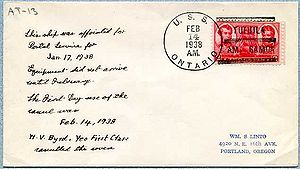 AT-13
This ship was appointed for
Postal Service for
Jan 17, 1938
Equipment did not arrive
until February.
The First Day use of the
cancel was
Feb. 14, 1938
H. V. Byrd, Yeo First Class
cancelled the cover
U. S. S.
FEB
14
1938
A.M.
ONTARIO
TUTUILA
AM. SAMOA
WM. S LINTO
4920 N. E. 16th AVE.
PORTLAND, OREGON